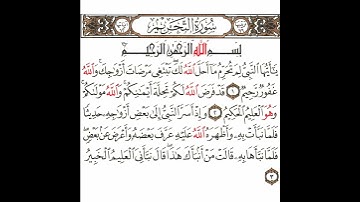 سُورَةُ التَّحْرِيمِ
بِسْمِ ٱللَّهِ ٱلرَّحْمَٰنِ ٱلرَّحِيمِ
يَٰٓأَيُّهَا ٱلنَّبِيُّ لِمَ تُحَرِّمُ مَآ أَحَلَّ ٱللَّهُ لَكَ تَبْتَغِي مَرْضَاتَ أَزْوَٰجِكَ وَٱللَّهُ
غَفُورٌ رَّحِيمٌ ١ قَدْ فَرَضَ ٱللَّهُ لَكُمْ تَحِلَّةَ أَيْمَٰنِكُمْ وَٱللَّهُ مَوْلَىٰكُمْ
وَهُوَ ٱلْعَلِيمُ ٱلْحَكِيمُ ٢ وَإِذْ أَسَرَّ ٱلنَّبِيُّ إِلَىٰ بَعْضِ أَزْوَٰجِهِۦ حَدِيثًا
فَلَمَّا نَبَّأَتْ بِهِۦ وَأَظْهَرَهُ ٱللَّهُ عَلَيْهِ عَرَّفَ بَعْضَهُۥ وَأَعْرَضَ عَنۢ بَعْضٍ
فَلَمَّا نَبَّأَهَا بِهِۦ قَالَتْ مَنْ أَنۢبَأَكَ هَٰذَا قَالَ نَبَّأَنِيَ ٱلْعَلِيمُ ٱلْخَبِيرُ
٣